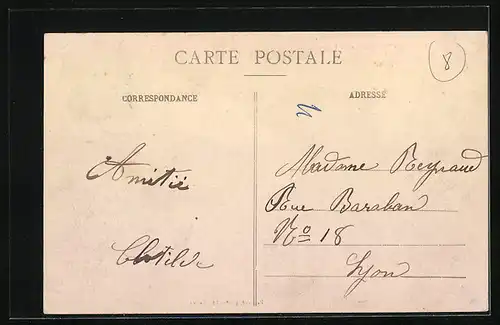 CARTE POSTALE
8
CORRESPONDANCE
ADRESSE
Amitié
Clotilde
Madame Reynaud
Rue Baraban
No 18
Lyon